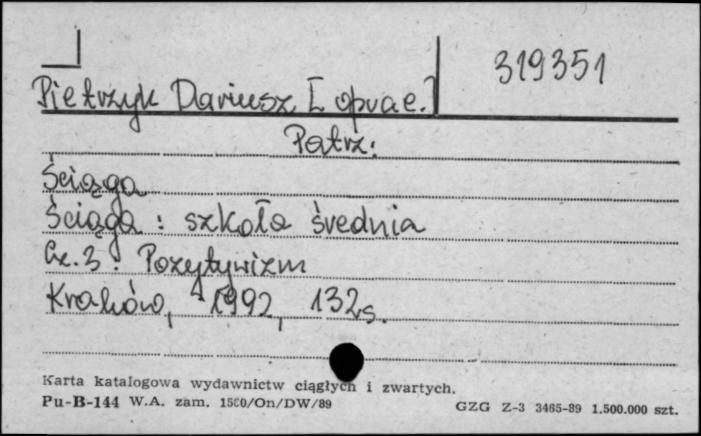 319351
Pietrzyk Dariusz [oprac.]
Patrz:
Ściąga
Ściąga : szkoła średnia
Cz. 3: Pozytywizm
Kraków, 1992, 132s.
Karta katalogowa wydawnictw ciągłych i zwartych.
Pu-B-144 W.A. zam. 1500/On/DW/89 GZG Z-3 3465-89 1.500.000 szt.